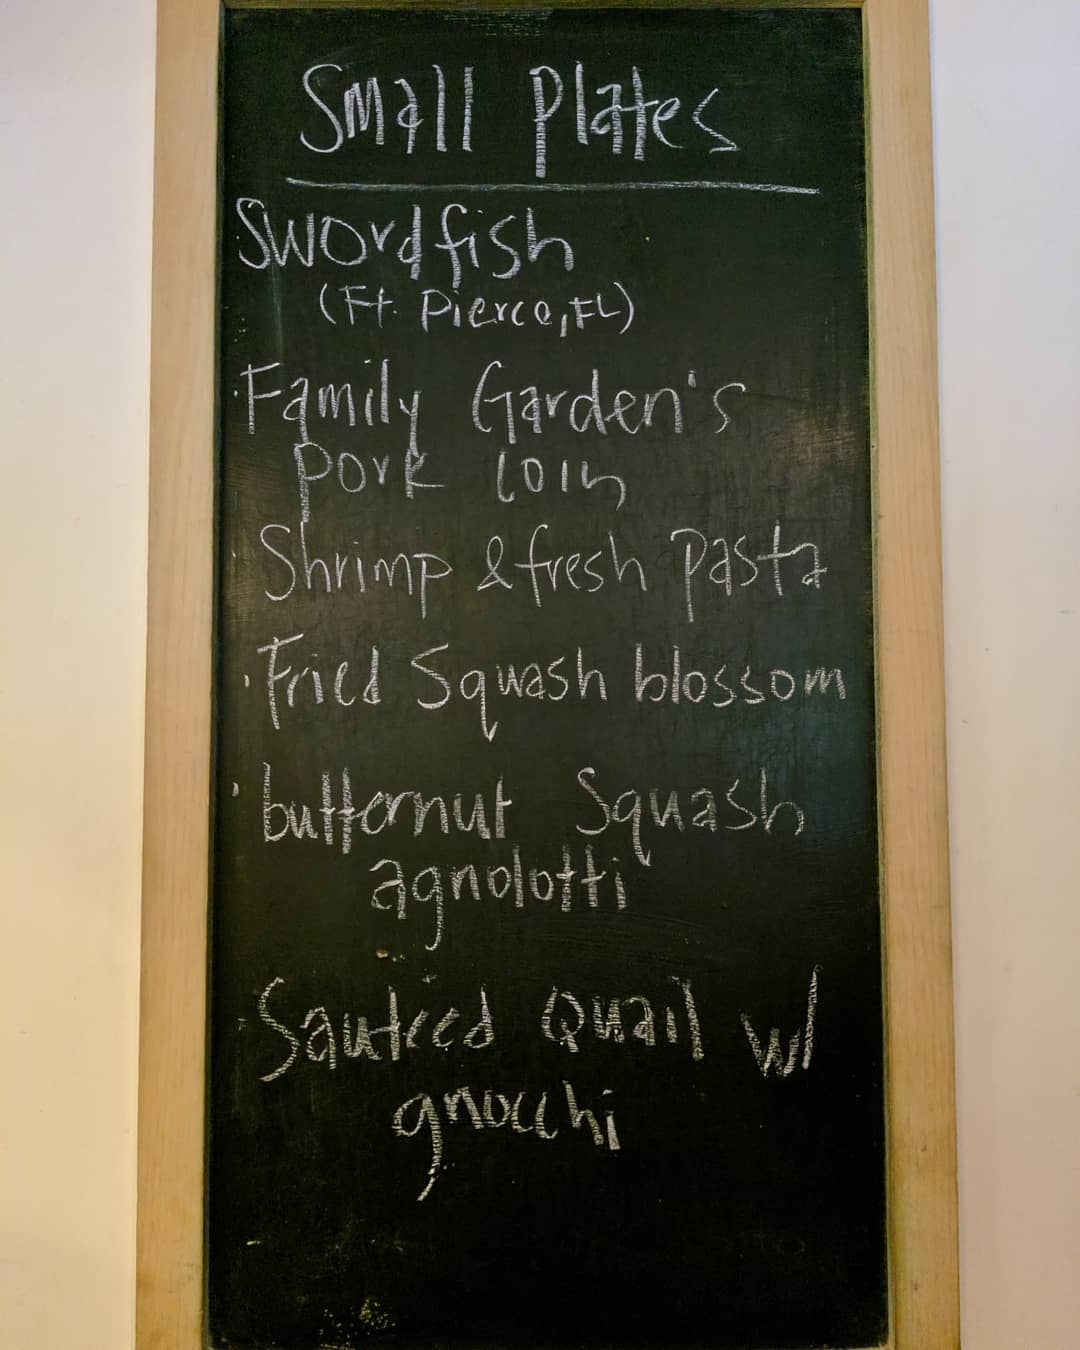 Small Plates
Swordfish
(Ft. Pierce, FL)
· Family Garden's
pork loin
Shrimp & fresh pasta
· Fried Squash blossom
· butternut Squash
agnolotti
Sauteed Quail w/
gnocchi